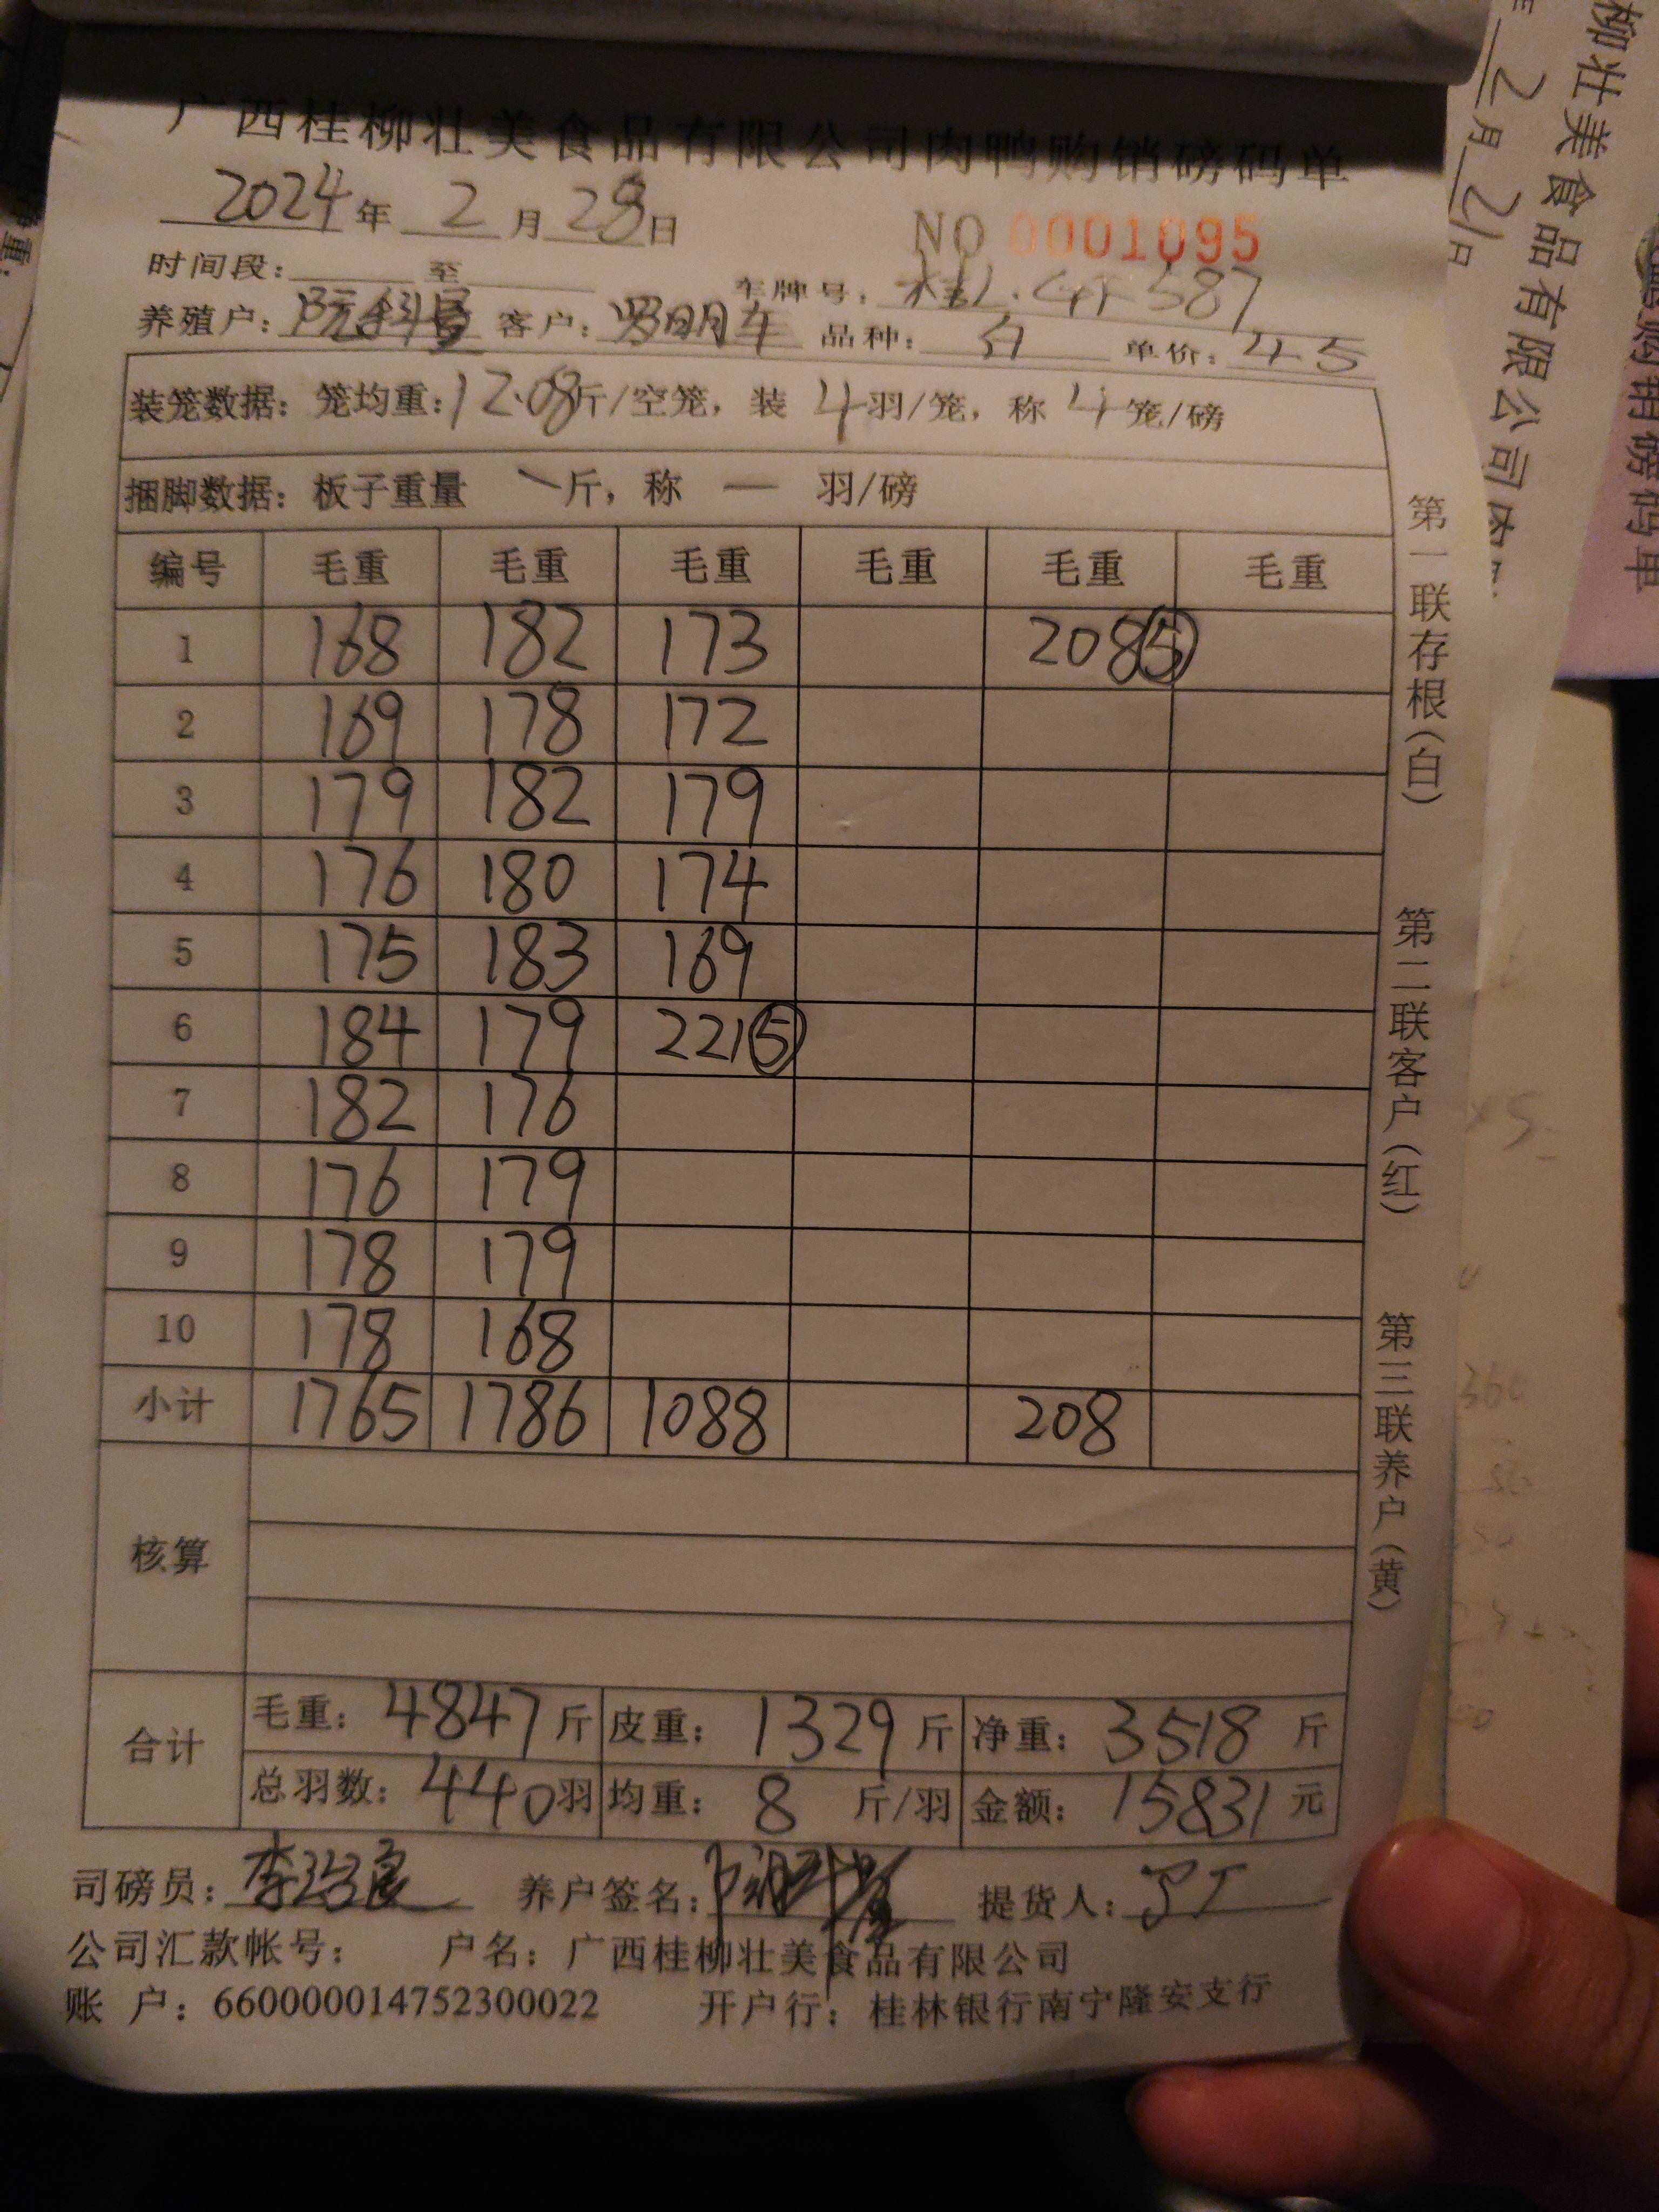 广西桂柳壮美食品有限公司肉鸭购销磅码单
2024年 2 月 28日 NO 0001095
时间段: 至 车牌号: 桂L·4F587
养殖户: 阮科 客户: 罗明车 品种: 白 单价: 4.5
装笼数据: 笼均重:12.08斤/空笼, 装 4 羽/笼, 称 4 笼/磅
捆脚数据: 板子重量 \ 斤, 称 — 羽/磅
编号 毛重 毛重 毛重 毛重 毛重 毛重
1 168 182 173 208⑤
2 169 178 172
3 179 182 179
4 176 180 174
5 175 183 169
6 184 179 221⑤
7 182 176
8 176 179
9 178 179
10 178 168
小计 1765 1786 1088 208
核算
合计
毛重: 4847 斤 皮重: 1329 斤 净重: 3518 斤
总羽数: 440羽 均重: 8 斤/羽 金额: 15831 元
司磅员: 李 养户签名: 提货人:
公司汇款帐号: 户名: 广西桂柳壮美食品有限公司
账 户: 660000014752300022 开户行: 桂林银行南宁隆安支行
第一联存根(白)
第二联客户(红)
第三联养户(黄)
柳壮美食品有限公司肉
2月21日
购销磅码单